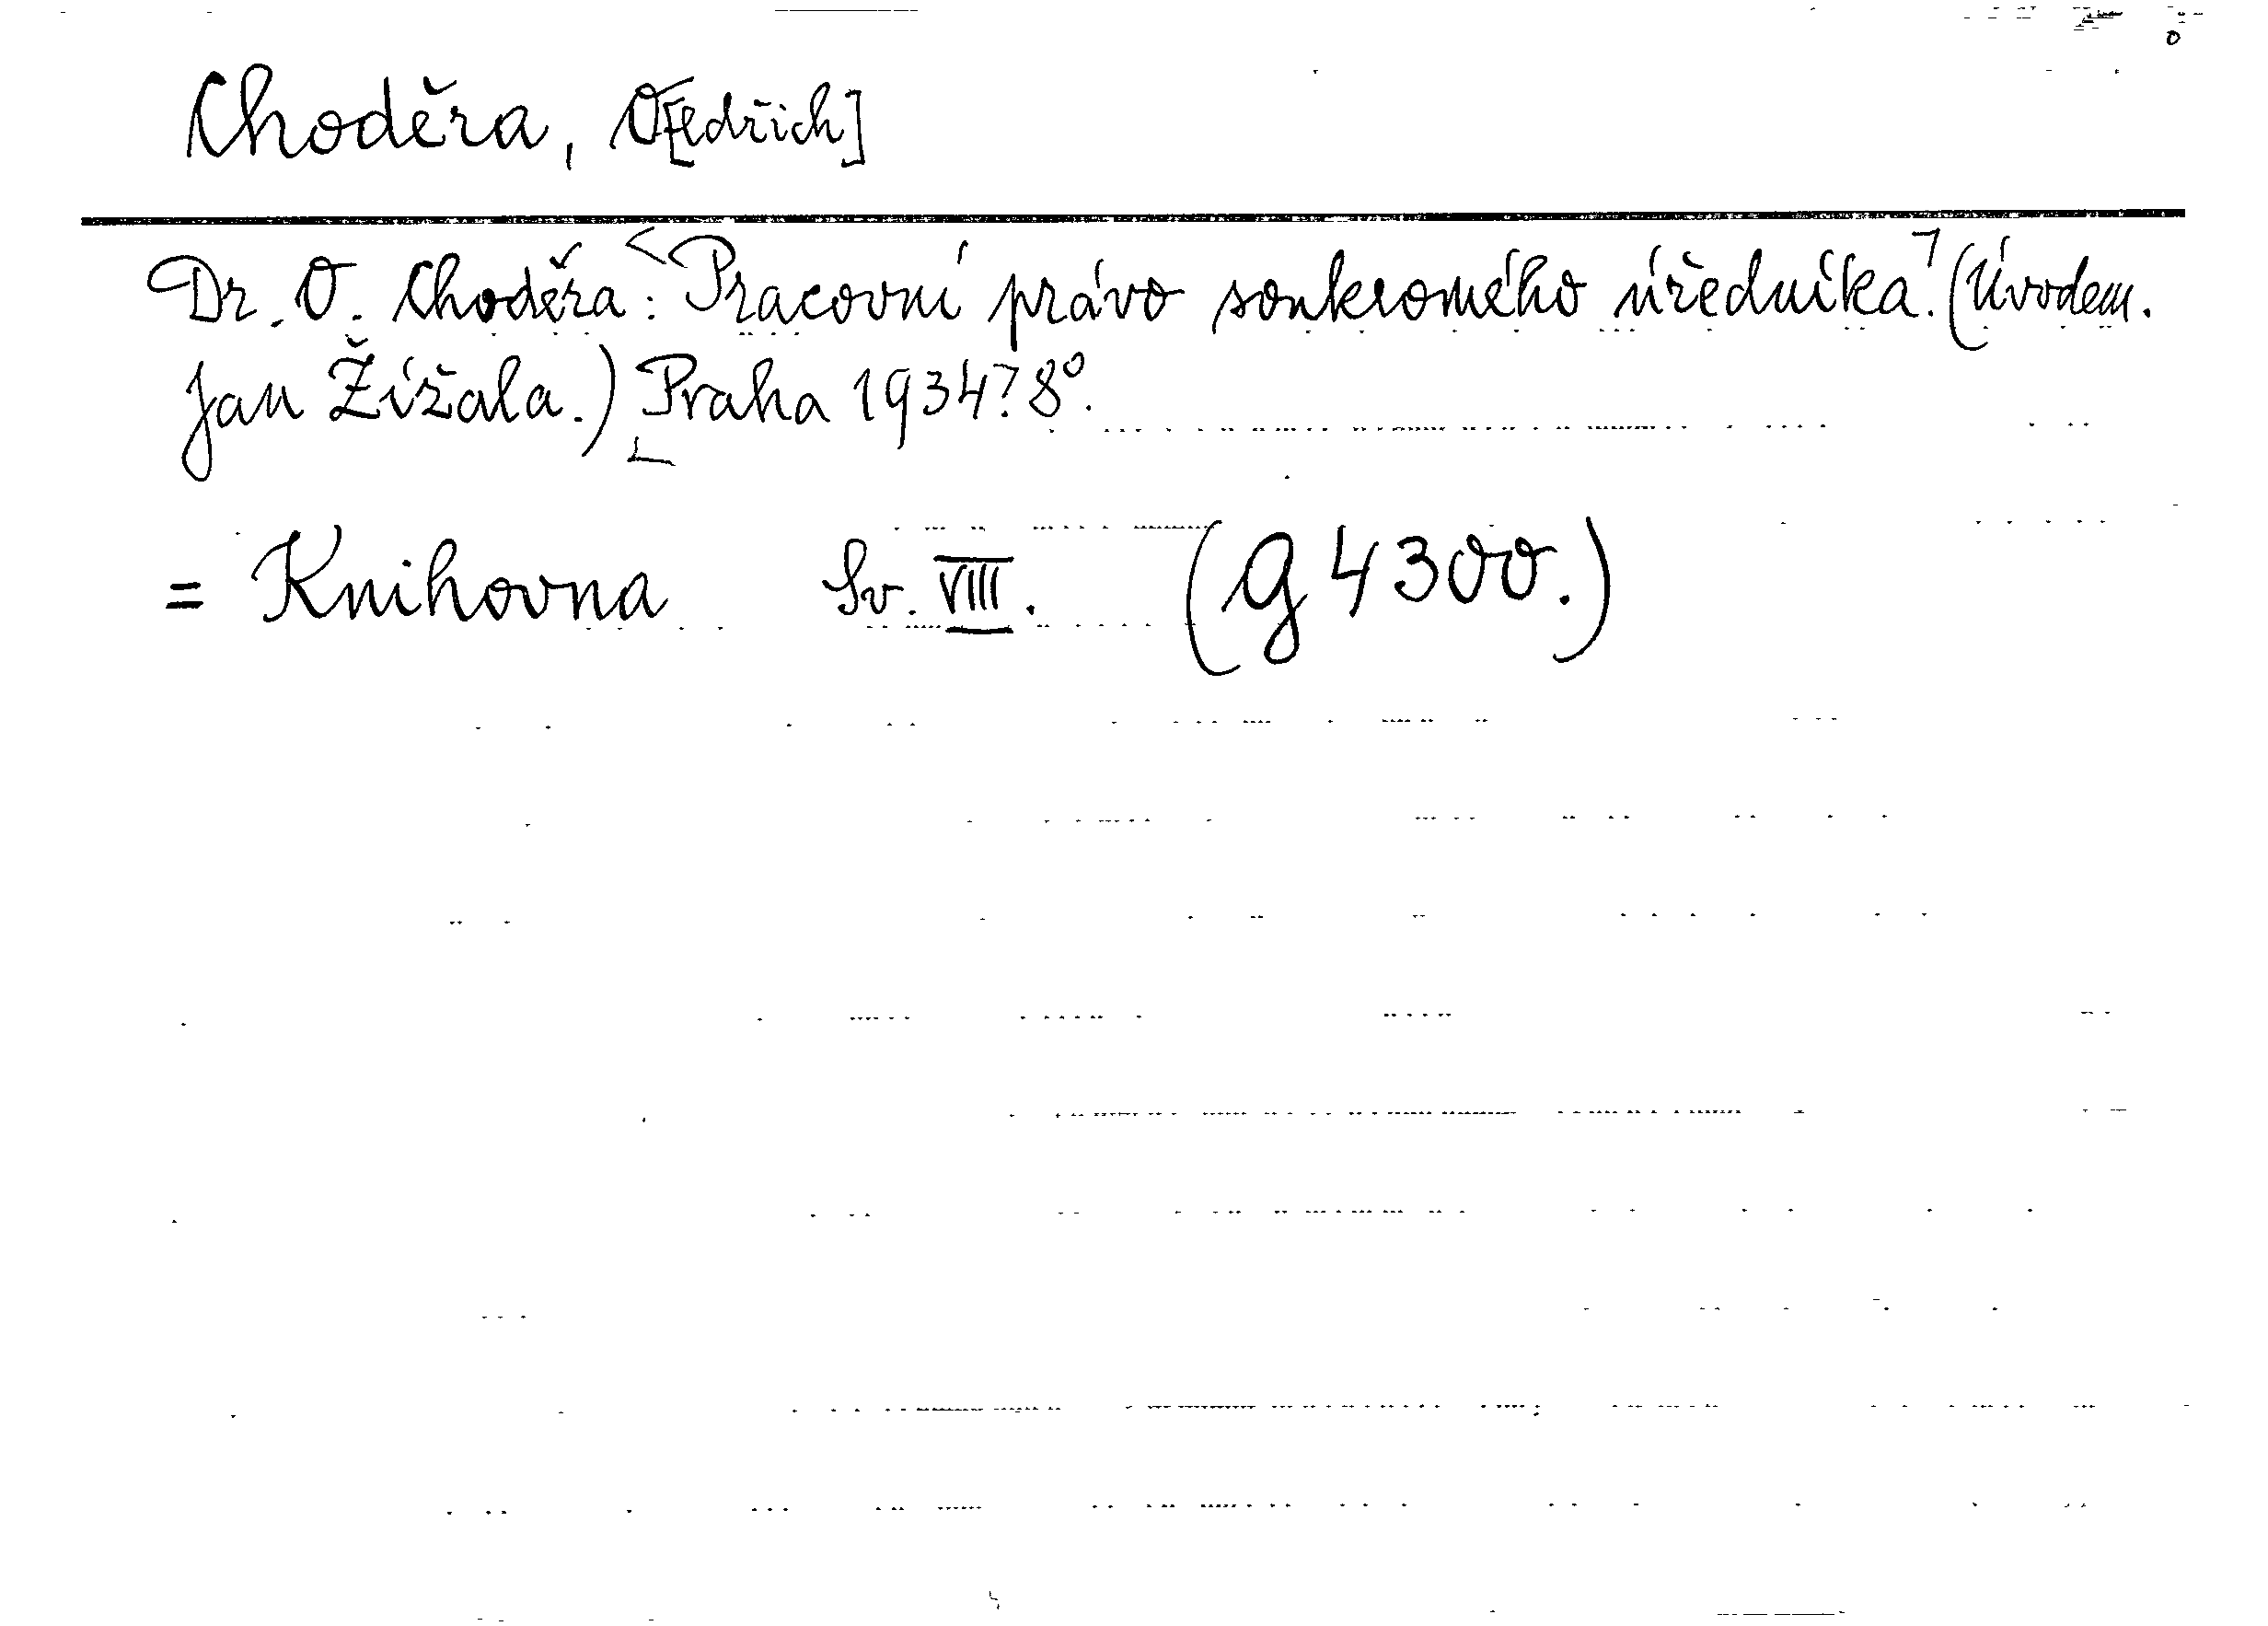 Choděra, O[ldřich]
Dr. O. Choděra: Pracovní právo soukromého úředníka. (Úvodem.
Jan Žížala.) Praha 1934? 8°.
= Knihovna Sv. VIII. (G 4300.)